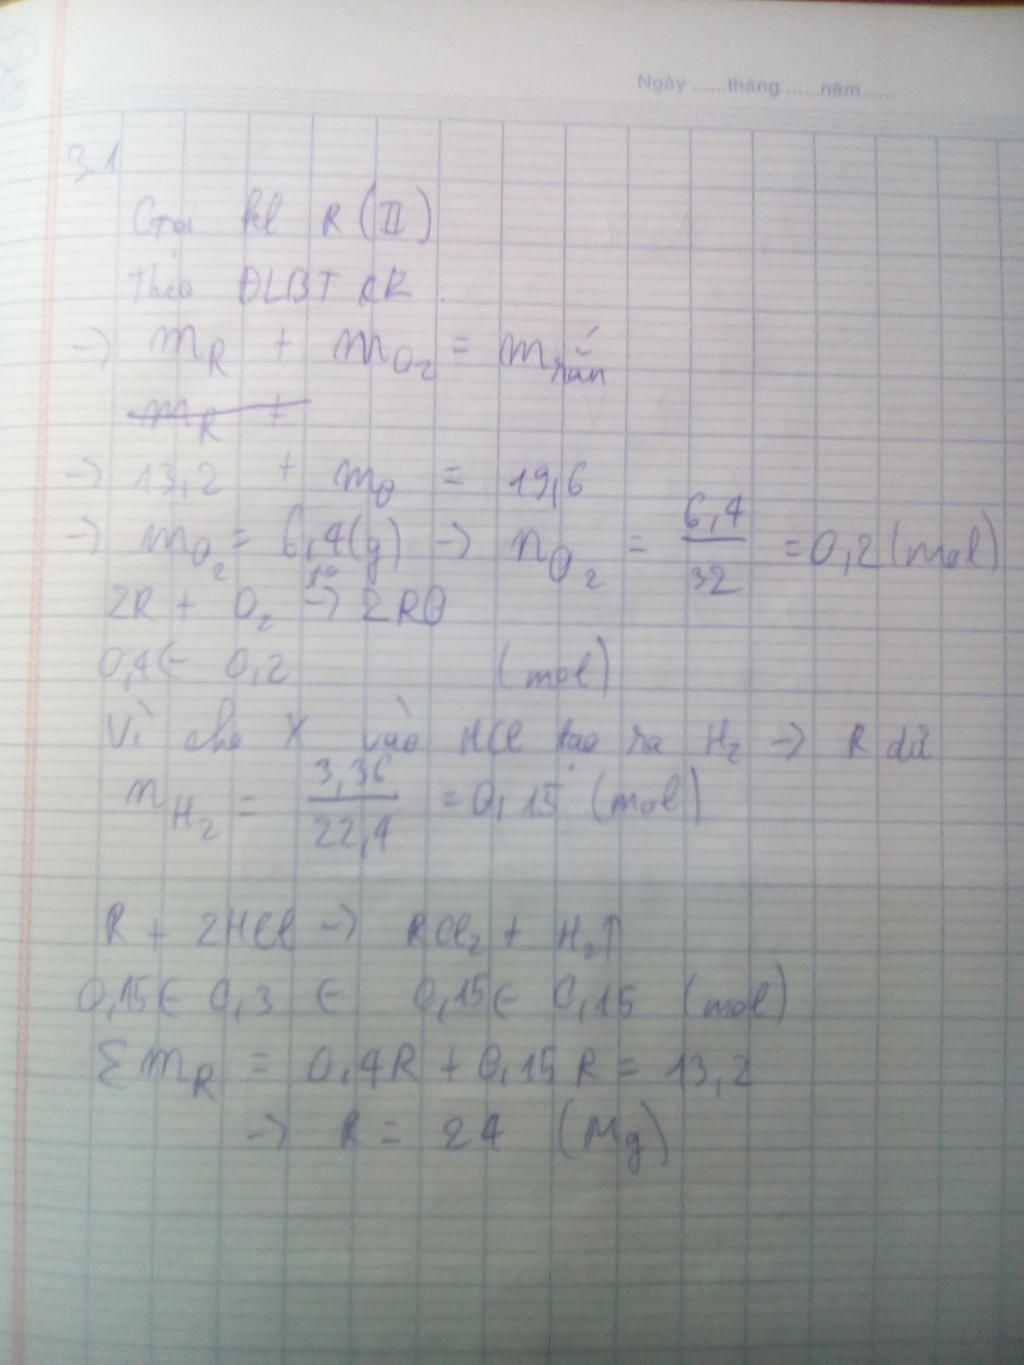 Ngày ......tháng ......năm......
3.1
Gọi kl R (II)
Theo ĐLBT KL
→ mR + mO2 = mrắn
mR +
→ 13,2 + mO = 19,6
→ mO2 = 6,4(g) → nO2 = 6,4/32 = 0,2 (mol)
2R + O2 t° → 2RO
0,4 ← 0,2 (mol)
Vì cho X vào HCl tạo ra H2 → R dư
nH2 = 3,36/22,4 = 0,15 (mol)
R + 2HCl → RCl2 + H2↑
0,15 ← 0,3 ← 0,15 ← 0,15 (mol)
ΣmR = 0,4R + 0,15R = 13,2
→ R = 24 (Mg)